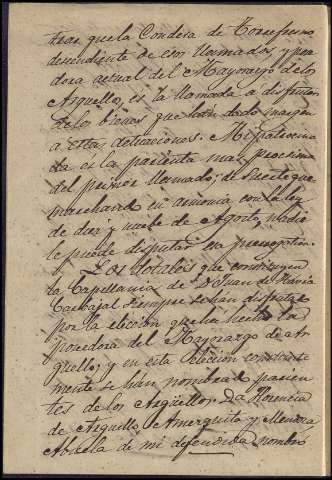 tras que la Condesa de Torrefresno
descendiente de esos llamados, y pose
dora actual del Mayorazgo de los
Arguello, es la llamada a disfrutar
de los bienes que han dado margen
a estas actuaciones. Mi patrocina
da es la parienta mas procsima
del primer llamado; de suerte que
marchand en armonia con la ley
de diez y nueve de Agosto, nadie
le puede disputar su prerrogativa.
Los dotales que constituyen
la Capellania de D. Juan de
Carbajal siempre se han disfrutado
por la eleccion que ha hecho la
poseedora del Mayorazgo de Ar
guello, y en esta eleccion constante
mente se han nombrado parien
tes de los Argüello. Da. Florencia
de Arguello Amezquita y Mendoza
Abuela de mi defendida nombró